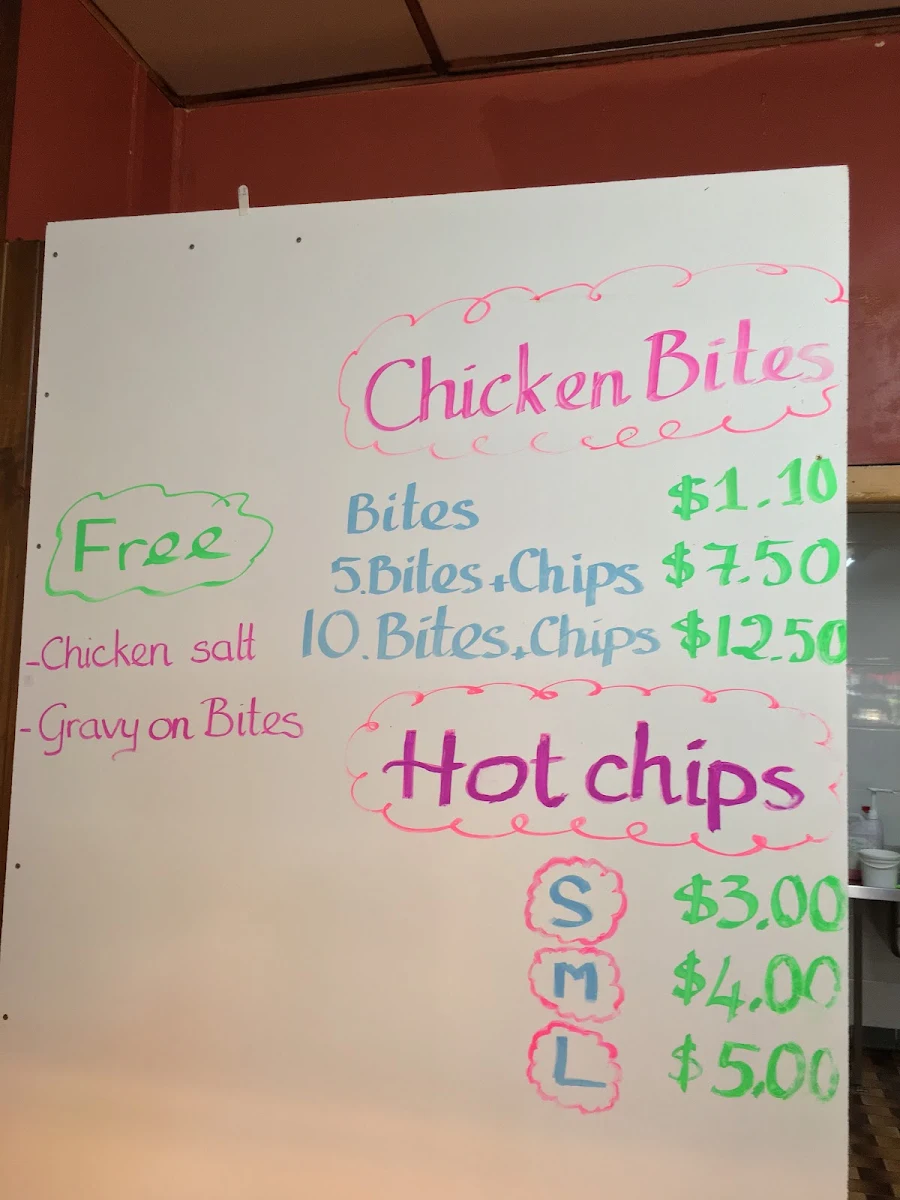 Chicken Bites
Bites $1.10
5.Bites+Chips $7.50
10.Bites+Chips $12.50
Free
-Chicken salt
-Gravy on Bites
Hot chips
S $3.00
M $4.00
L $5.00